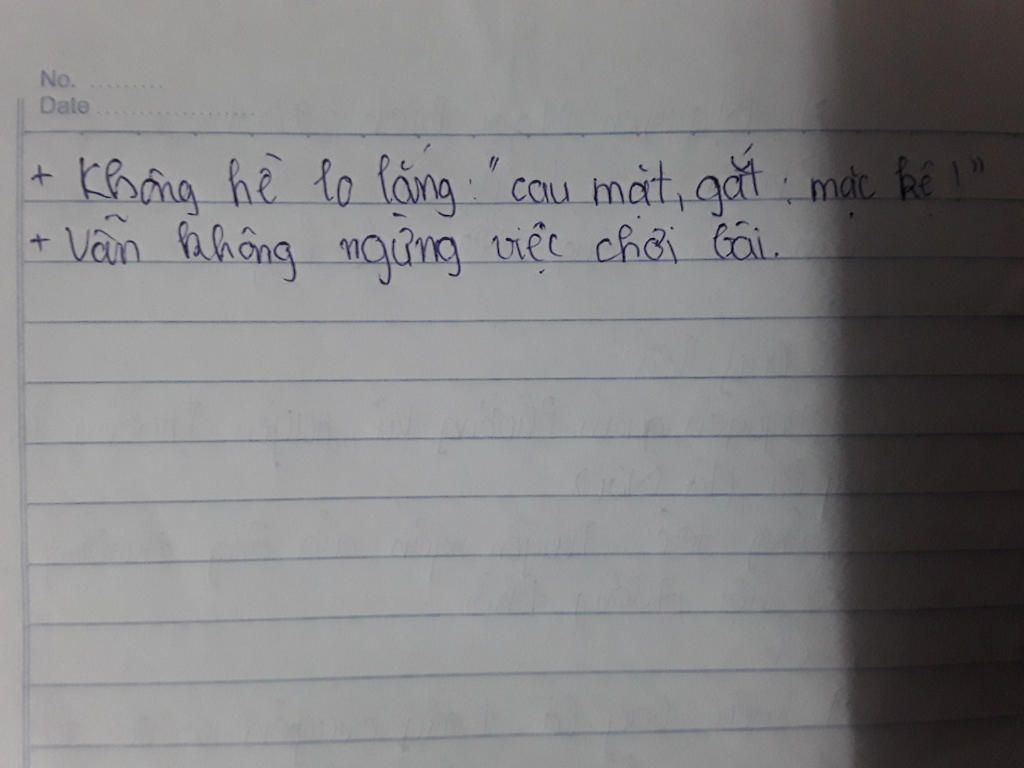 No. ..........
Date ......................
+ Không hề lo lắng: "cau mặt, gắt: mặc kệ!"
+ Vẫn không ngừng việc chơi bài.